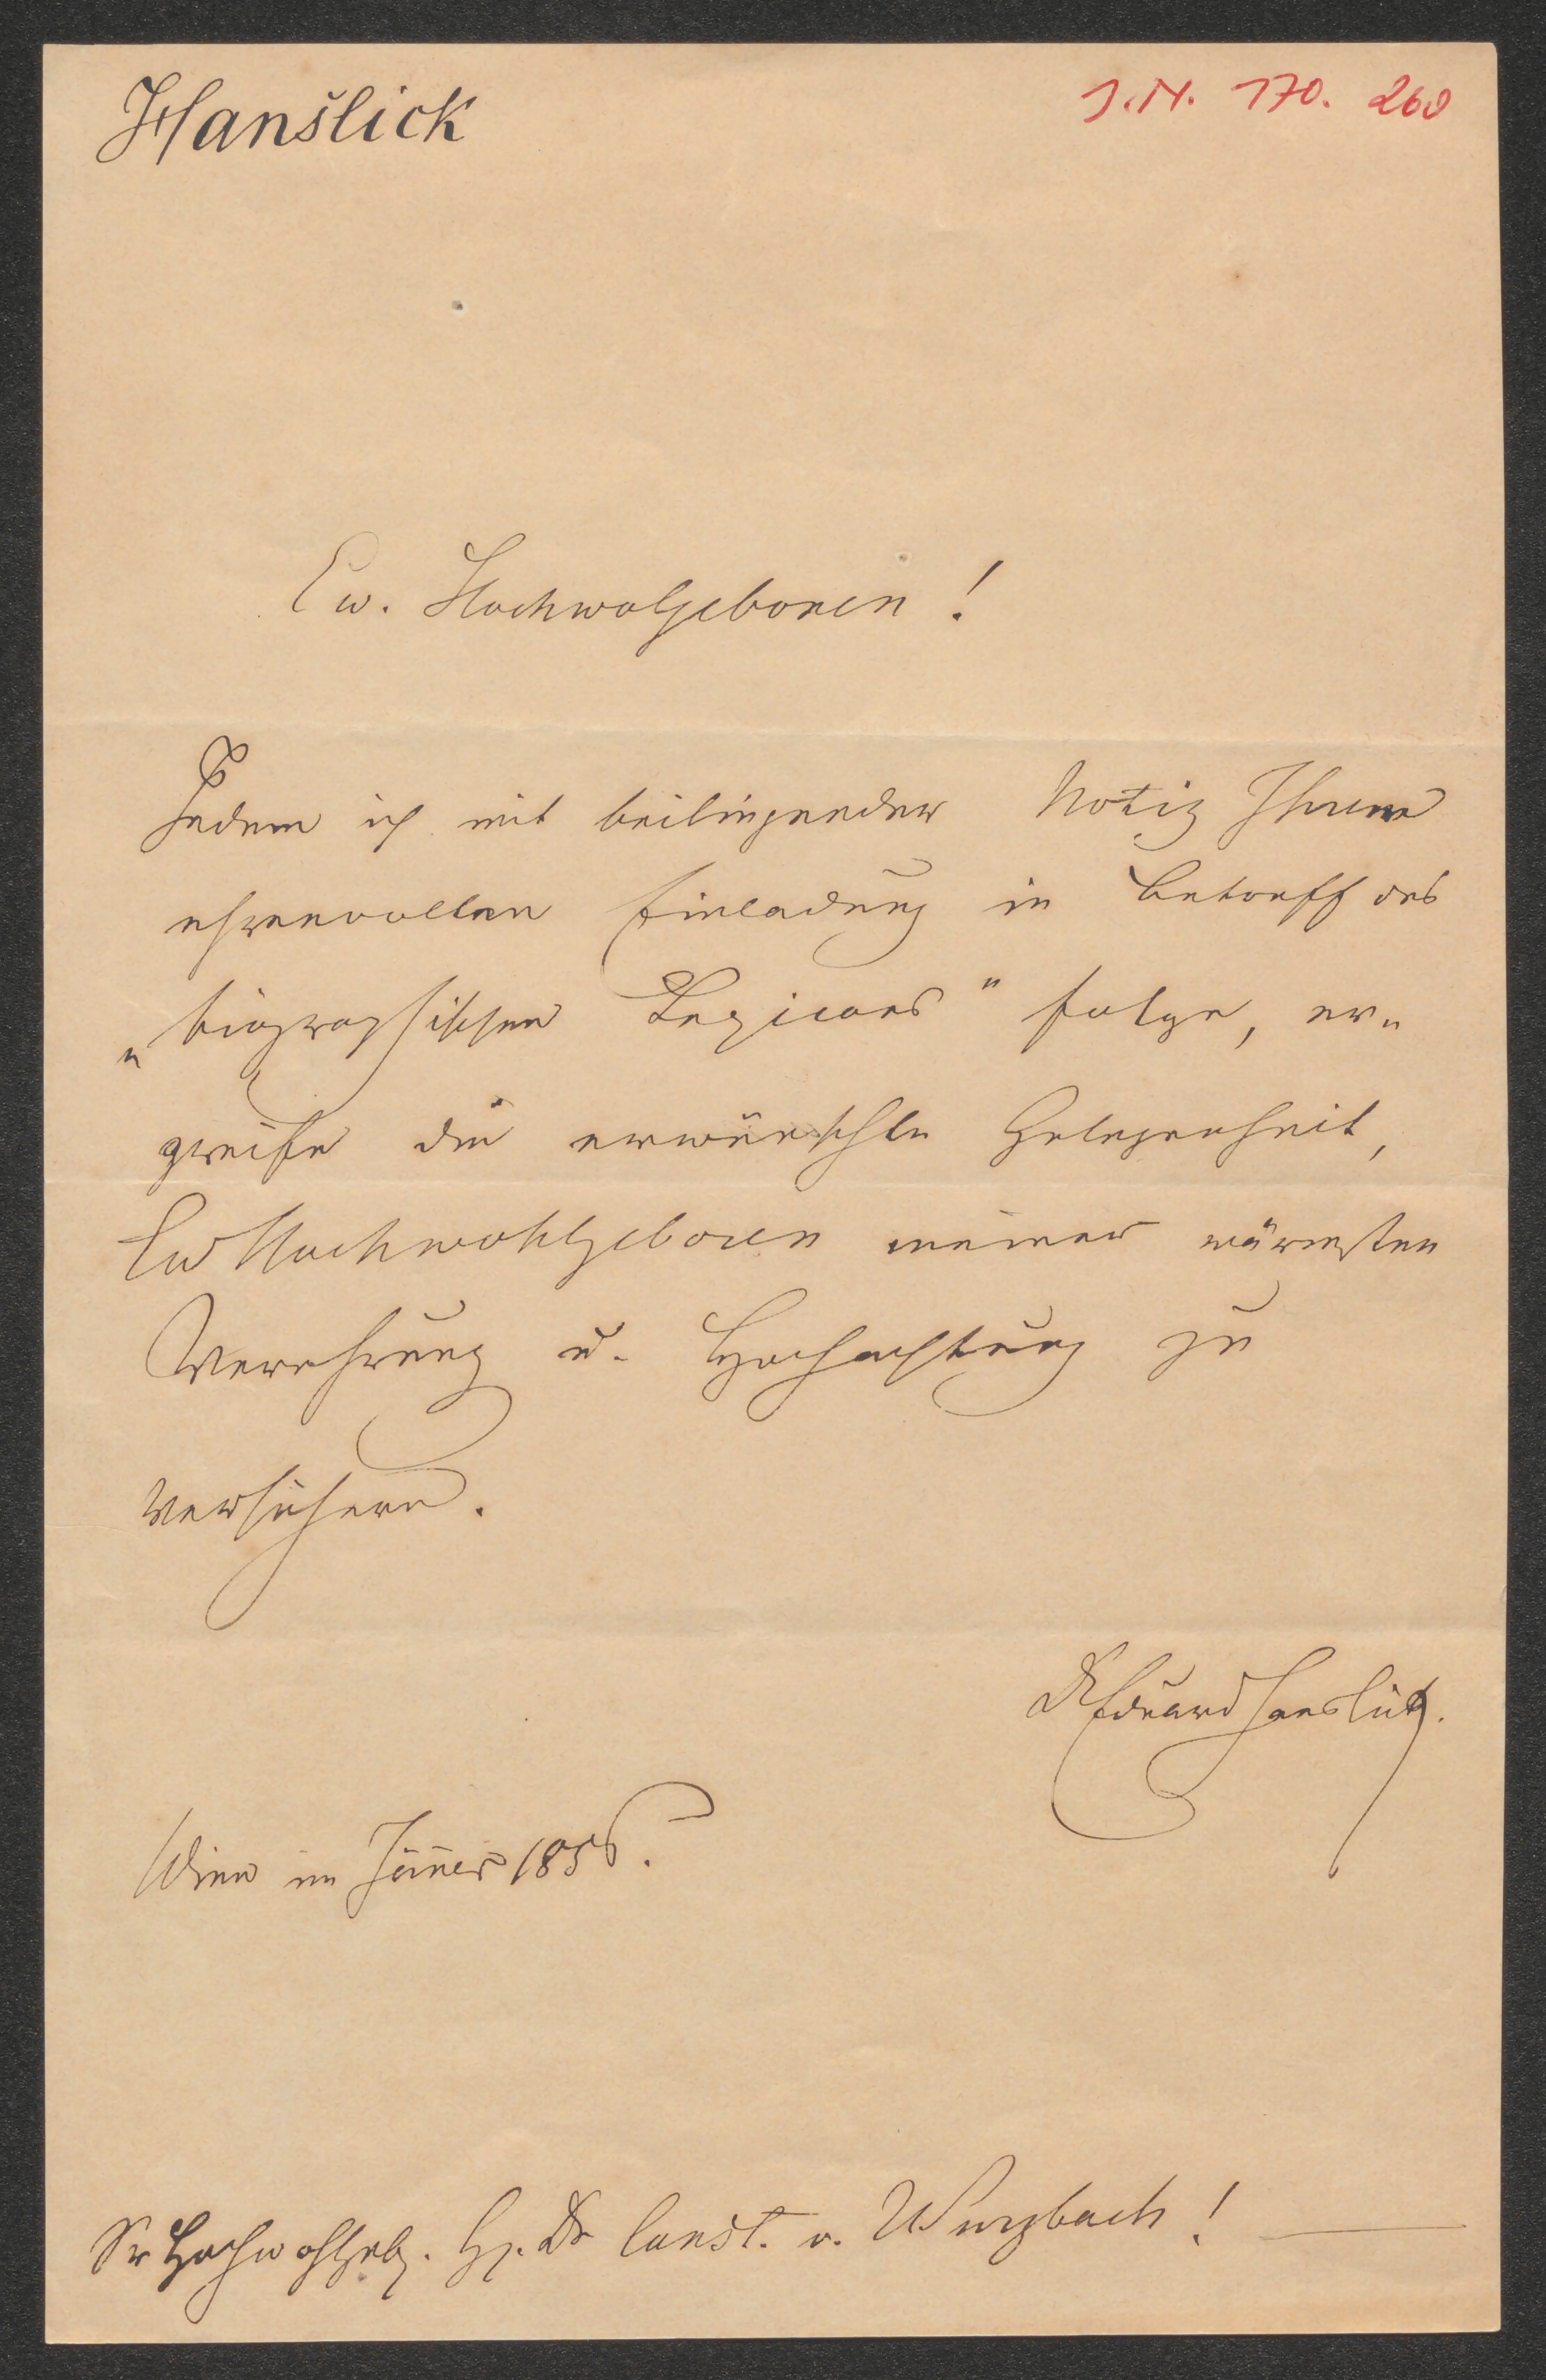 Hanšlick
J.N. 170.260
Ew. Hochwolgeboren!
Indem ich mit beiliegender Notiz Ihrer
ehrenvollen Einladung in Betreff des
„biographischen Lexicons" folge, er„
greife die erwünschte Gelegenheit,
Ew Hochwohlgeboren meiner wärmsten
Verehrung u. Hochachtung zu
versichern.
Dr Eduard Hanslick.
Wien im Jänner 1856.
Sr Hochwohlgeb. Hr. Dr Const. v. Wurzbach!